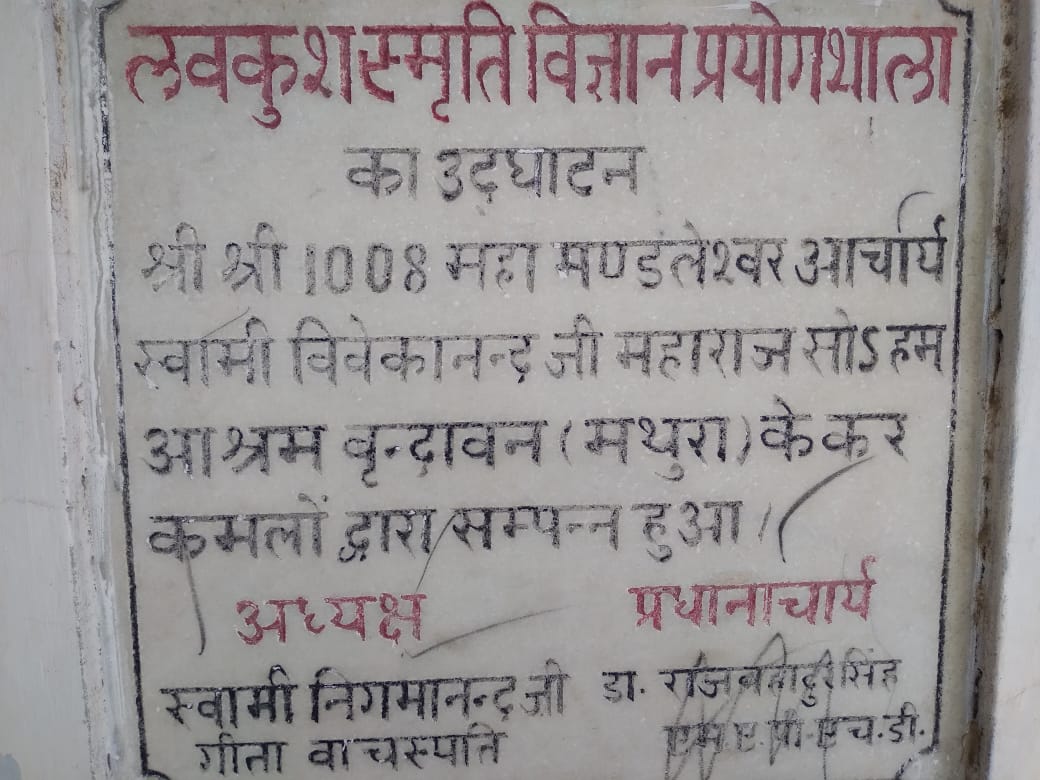 लवकुश स्मृति विज्ञान प्रयोगशाला
का उद्घाटन
श्री श्री 1008 महा मण्डलेश्वर आचार्य
स्वामी विवेकानन्द जी महाराज सोऽहम
आश्रम वृन्दावन (मथुरा) के कर
कमलों द्वारा सम्पन्न हुआ।
अध्यक्ष प्रधानाचार्य
स्वामी निगमानन्द जी डा. सिंह
गीता वाचस्पति एम ए पी एच.डी.